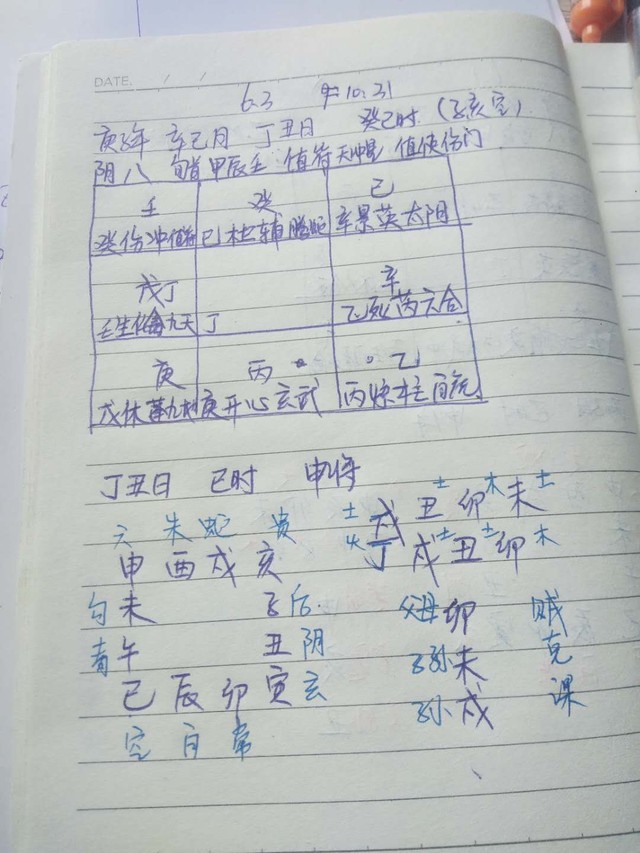 DATE.    /    /
6.3    10:31
庚子年 辛巳月 丁丑日 癸巳时 (子亥空)
阴八 旬首甲辰壬 值符天冲星 值使伤门
壬 癸 己
癸伤冲值符 巳杜辅腾蛇 辛景英太阴
戊丁 辛
壬生任九天 丁 乙死芮六合
庚 丙 乙
戊休蓬九地 庚开心玄武 丙惊柱白虎
丁丑日 巳时 申将
土 戌 土丑 卯木 未土
六 朱 蛇 贵 火丁 戌土 丑土 卯木
申 酉 戌 亥
勾未 子后 父母卯 贼
青午 丑阴 子孙未 克
巳 辰 卯 寅玄 子孙戌 课
空 白 常